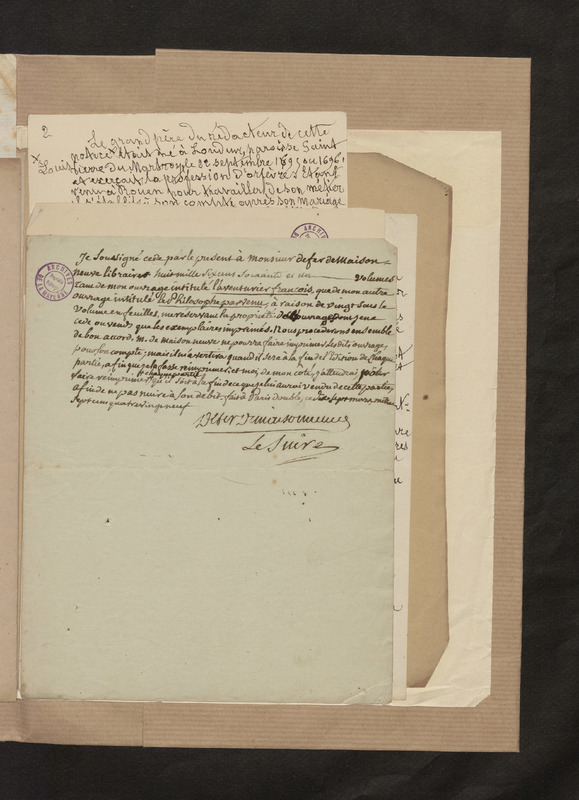 2
Le grand père du rédacteur de cette
notice était né à Loudun, paroisse Saint
x Louis
Pierre du Marbroy le 22 septembre 1695 ou 1696 !
et exerçait la profession D'orfèvre. Etant
venu à Rouen pour travailler de son métier
il s'établit à son compte après son mariage
Je Soussigné cede par le present à monsieur defer de Maison-
neuve libraire huit mille Sixcens Soixante et un volumes
tant de mon ouvrage intitulé l'aventurier françois, que de mon autre
ouvrage intitulé le Philosophe parvenu, à raison de vingt sous le
volume en feuilles, me reservant la propriété de l'ouvrage dont je ne
cede ou vends que les exemplaires imprimés. Nous procederons ensemble
de bon accord. m. de maison neuve ne pourra faire imprimer les dits ouvrages
pour son compte; mais il m'avertira quand il sera à la fin de l'edition de chaque
partie, afin que je la fasse reimprimer; et moi, de mon côté, j'attendrai pour
faire reimprimer chaque partie qu'il soit à la fin de ce que je lui aurai vendu de cette partie,
afin de ne pas nuire à son debit. fait à Paris double, ce dix sept mars mil
sept cens quatre vingt neuf
Defer Demaisonneuve
Le Suire
ARCHIVES
DE LA MAYENNE